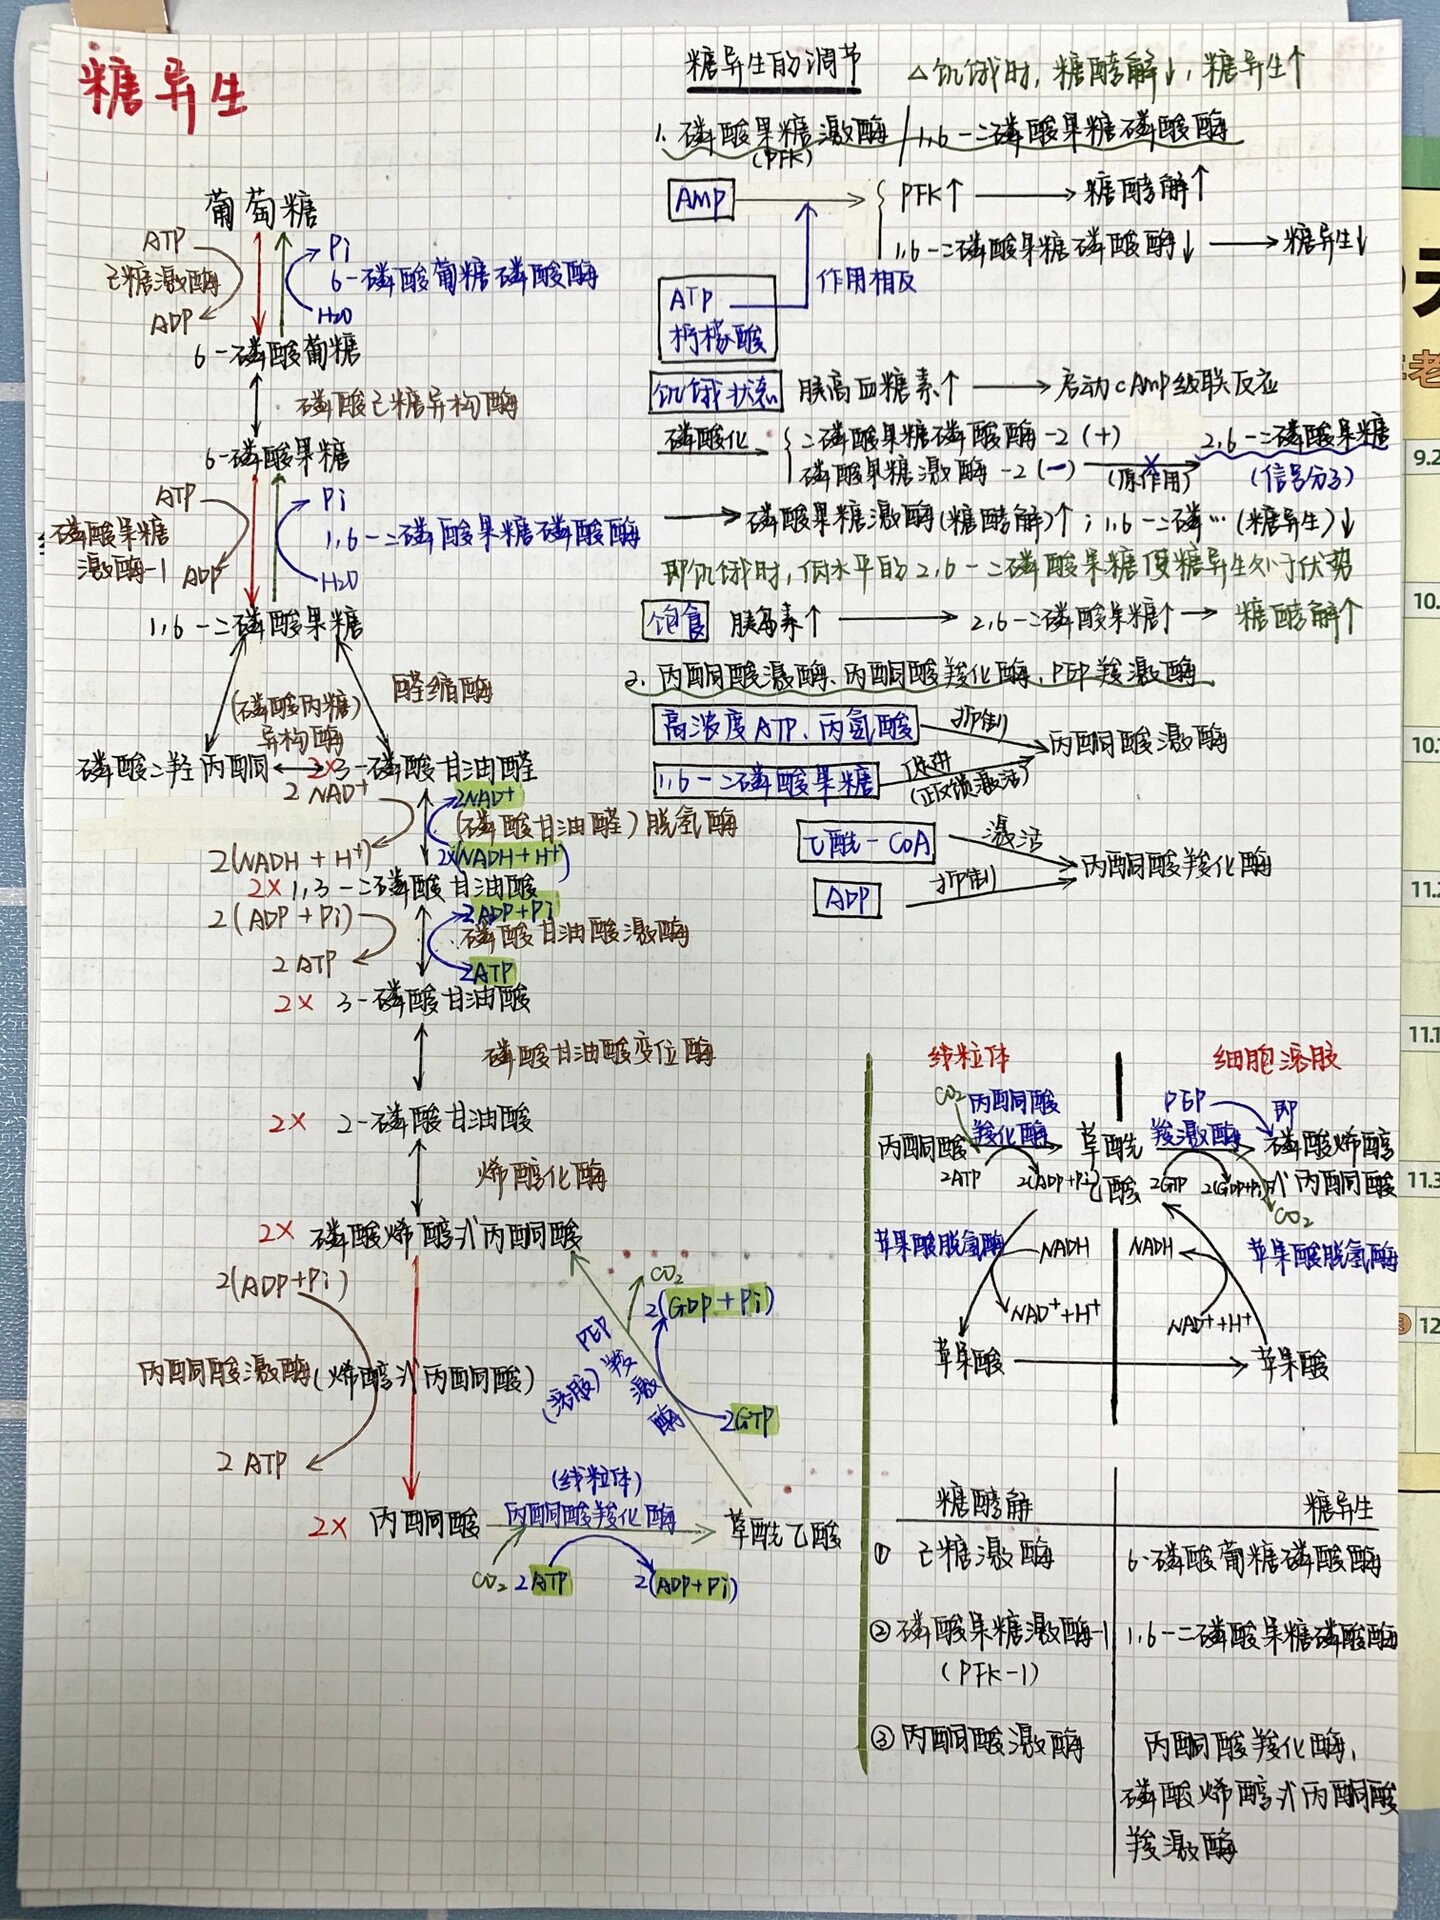 糖异生
葡萄糖
ATP
己糖激酶
ADP
Pi
6-磷酸葡糖磷酸酶
H2O
6-磷酸葡糖
磷酸己糖异构酶
6-磷酸果糖
ATP
磷酸果糖
激酶-1
ADP
Pi
1,6-二磷酸果糖磷酸酶
H2O
1,6-二磷酸果糖
(磷酸丙糖)
异构酶
醛缩酶
磷酸二羟丙酮
2×3-磷酸甘油醛
2 NAD+
2(NADH + H+)
2NAD+
(磷酸甘油醛)脱氢酶
2×(NADH+H+)
2× 1,3-二磷酸甘油酸
2(ADP+Pi)
2 ATP
2ADP+Pi
磷酸甘油酸激酶
2ATP
2× 3-磷酸甘油酸
磷酸甘油酸变位酶
2× 2-磷酸甘油酸
烯醇化酶
2× 磷酸烯醇式丙酮酸
2(ADP+Pi)
丙酮酸激酶(烯醇式丙酮酸)
2 ATP
CO2
2(GDP+Pi)
PEP
(溶胶)羧
激
酶
2GTP
2× 丙酮酸
(线粒体)
丙酮酸羧化酶
草酰乙酸
CO2
2ATP
2(ADP+Pi)
糖异生的调节
△饥饿时,糖酵解↓,糖异生↑
1. 磷酸果糖激酶/1,6-二磷酸果糖磷酸酶
(PFK)
AMP
PFK↑ → 糖酵解↑
1,6-二磷酸果糖磷酸酶↓ → 糖异生↓
作用相反
ATP
柠檬酸
饥饿状态 胰高血糖素↑ → 启动cAMP级联反应
磷酸化
二磷酸果糖磷酸酶-2(+)
磷酸果糖激酶-2(-)
(原作用)
2,6-二磷酸果糖
(信号分子)
→ 磷酸果糖激酶(糖酵解)↑;1,6-二磷…(糖异生)↓
即饥饿时,低水平的2,6-二磷酸果糖使糖异生处于优势
饱食 胰岛素↑ → 2,6-二磷酸果糖↑ → 糖酵解↑
2. 丙酮酸激酶、丙酮酸羧化酶、PEP羧激酶
高浓度ATP、丙氨酸
抑制
丙酮酸激酶
1,6-二磷酸果糖
促进
(正反馈激活)
乙酰-CoA
激活
丙酮酸羧化酶
ADP
抑制
线粒体
细胞溶胶
CO2
丙酮酸
羧化酶
丙酮酸
2ATP
2(ADP+Pi)
草酰
乙酸
PEP
羧激酶
即
磷酸烯醇
式丙酮酸
2GTP
2(GDP+Pi)
CO2
苹果酸脱氢酶
NADH
NAD++H+
NADH
NAD++H+
苹果酸脱氢酶
苹果酸
苹果酸
糖酵解
糖异生
① 己糖激酶
6-磷酸葡糖磷酸酶
② 磷酸果糖激酶-1
(PFK-1)
1,6-二磷酸果糖磷酸酶
③ 丙酮酸激酶
丙酮酸羧化酶,
磷酸烯醇式丙酮酸
羧激酶
老
9.2
10.
10.
11.2
11.1
11.3
12